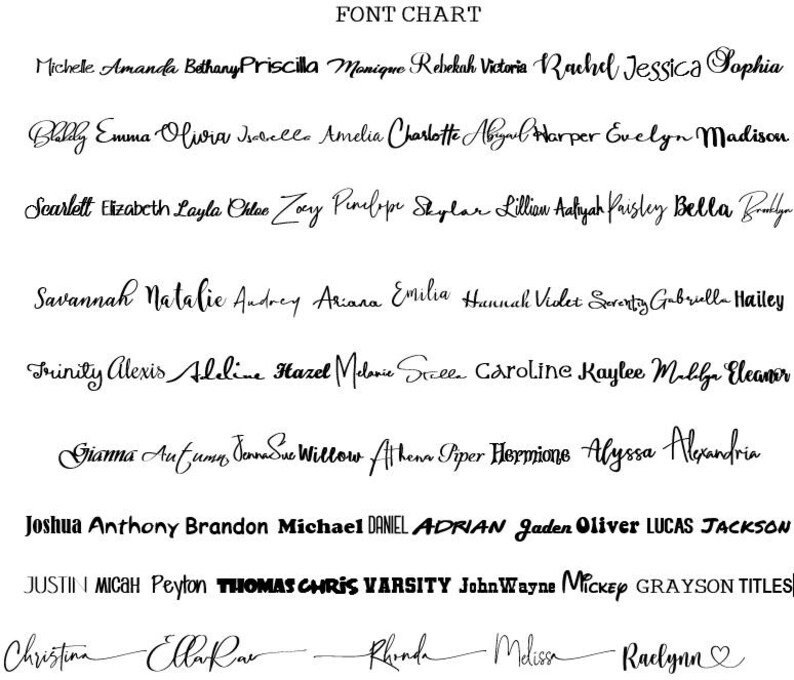 FONT CHART
Michelle Amanda Bethany Priscilla Monique Rebekah Victoria Rachel Jessica Sophia
Blakely Emma Olivia Isabella Amelia Charlotte Abigail Harper Evelyn Madison
Scarlett Elizabeth Layla Chloe Zoey Penelope Skylar Lillian Aaliyah Paisley Bella Brooklyn
Savannah Natalie Audrey Ariana Emilia Hannah Violet Serenity Gabriella Hailey
Trinity Alexis Adeline Hazel Melanie Stella Caroline Kaylee Madelyn Eleanor
Gianna Autumn JennaSue Willow Athena Piper Hermione Alyssa Alexandria
Joshua Anthony Brandon Michael DANIEL ADRIAN Jaden Oliver LUCAS JACKSON
JUSTIN MICAH Peyton THOMAS CHRIS VARSITY JohnWayne Mickey GRAYSON TITLES
Christina EllaRae Rhonda Melissa Raelynn